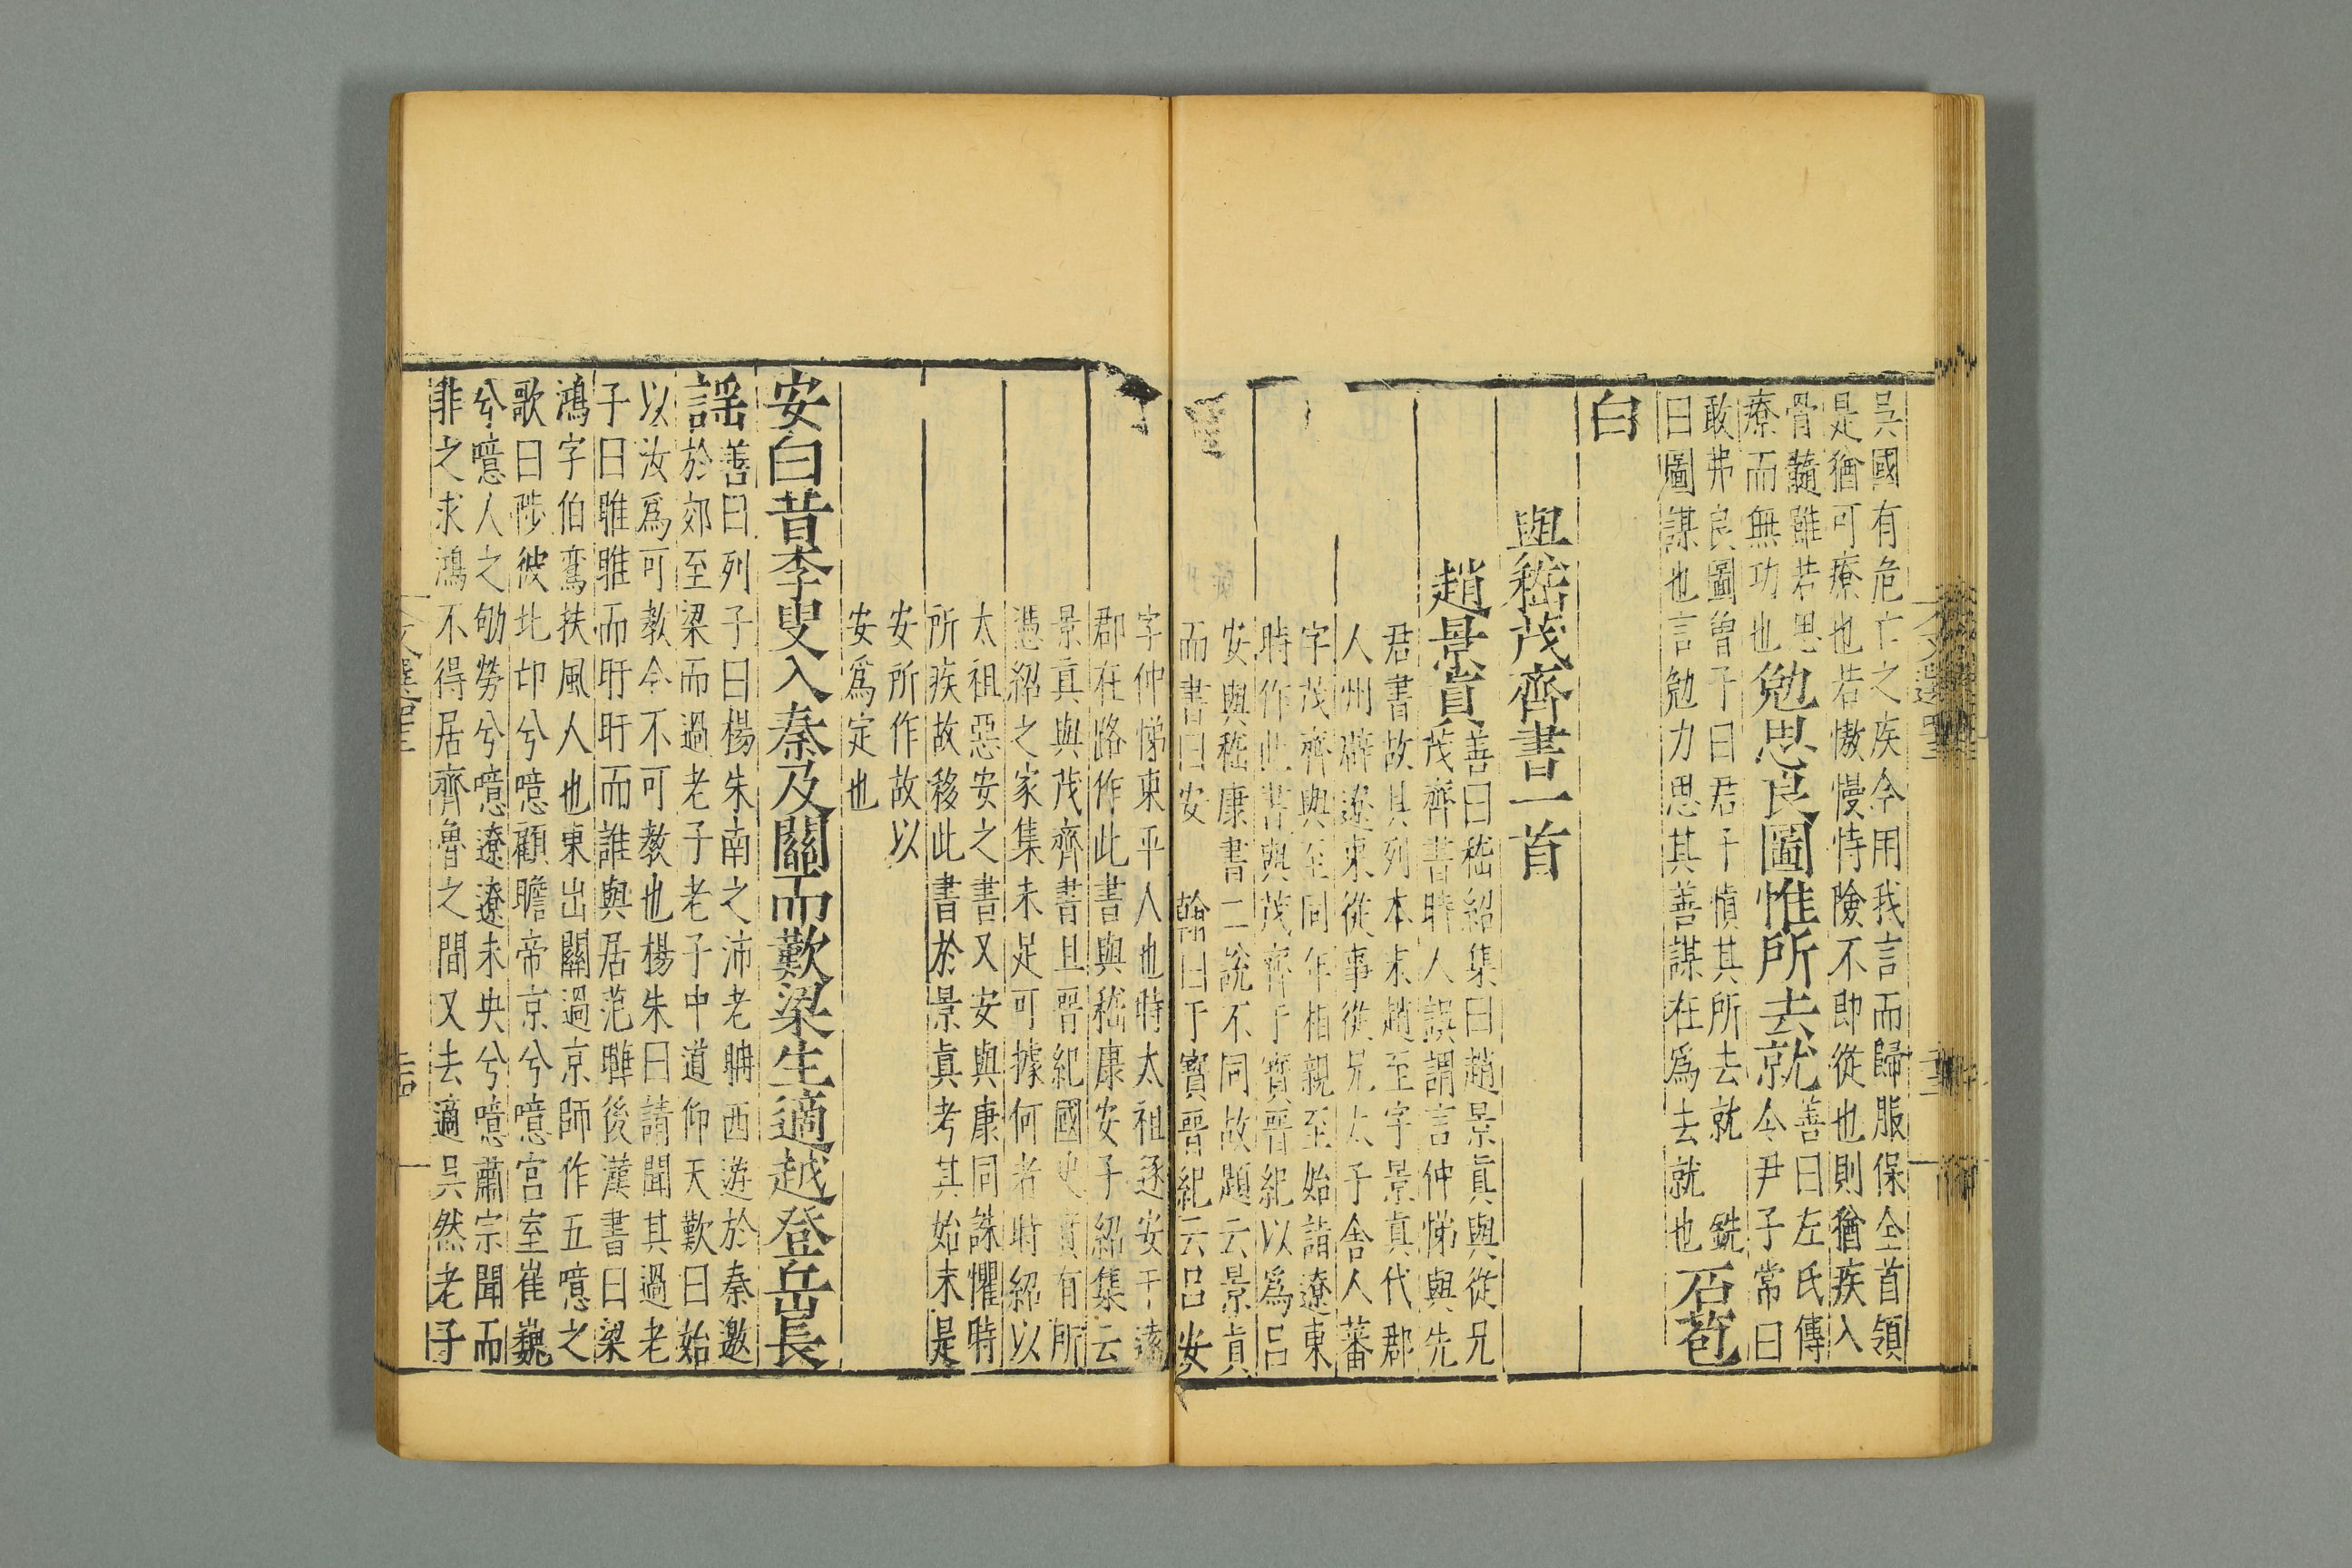 吴國有危亡之疾今用我言而歸服保全首領
是猶可療也若慠慢恃險不即從也則猶疾入
骨髓雖若思
療而無功也
勉思良圖惟所去就
善曰左氏傳
令尹子常曰
敢弗良圖曽子曰君子慎其所去就 銑
曰圖謀也言勉力思其善謀在爲去就也
石苞
白
與嵇茂齊書一首
趙景眞
善曰嵇紹集曰趙景眞與從兄
茂齊書時人誤謂言仲悌與先
君書故具列本末趙至字景真代郡
人州辟遼東從事從兄太子舎人蕃
字茂齊與至同年相親至始詣遼東
時作此書與茂齊于寳晋紀以爲吕
安與嵇康書二説不同故題云景真
而書曰安 翰曰于寳晋紀云吕安
字仲悌東平人也時太祖逐安于逺
郡在路作此書與嵇康安子紹集云
景真與茂齊書且晋紀國史實有所
憑紹之家集未足可據何者時紹以
太祖惡安之書又安與康同誅懼時
所疾故移此書於景真考其始末是
安所作故以
安爲定也
安白昔李叟入秦及關而歎梁生適越登岳長
謡
善曰列子曰楊朱南之沛老聃西遊於秦邀
於郊至梁而過老子老子中道仰天歎曰始
以汝爲可教今不可教也楊朱曰請聞其過老
子曰雎雎而盱盱而誰與居范曄後漢書曰梁
鴻字伯鸞扶風人也東出關過京師作五噫之
歌曰陟彼北邙兮噫顧瞻帝京兮噫宫室崔巍
兮噫人之劬勞兮噫遼遼未央兮噫肅宗聞而
非之求鴻不得居齊魯之間又去適吴然老子